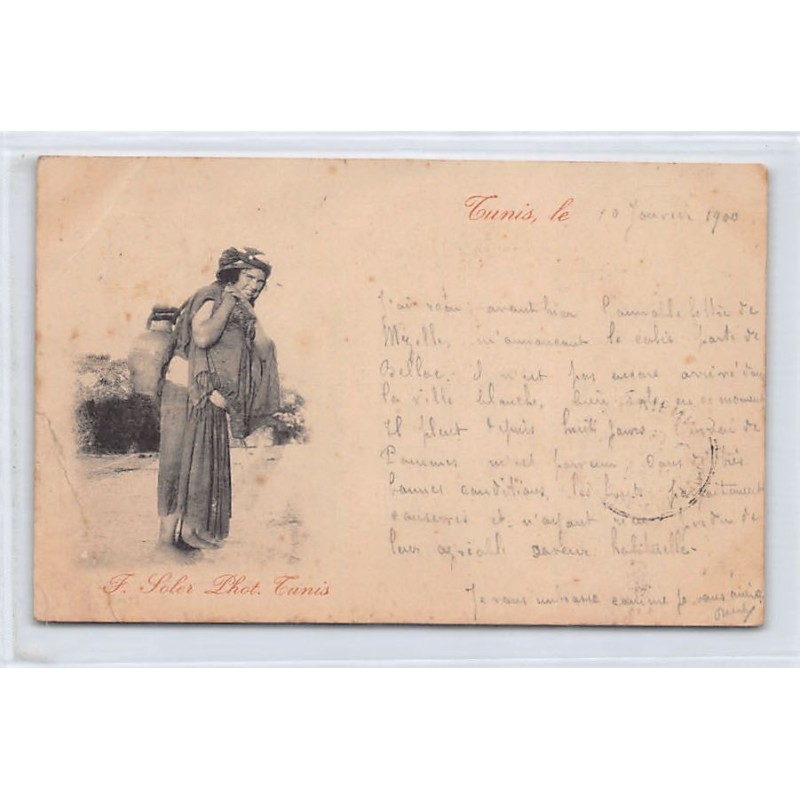 Tunis, le 10 Janvier 1900
J'ai reçu, avant hier l'aimable lettre de
Mselle, m'annonçant le colis parti de
Bellac. Il n'est pas encore arrivé dans
la ville blanche, bien sale en ce moment
Il pleut depuis huit jours. L'envoi de
Pommes m'est parvenu, dans de très
bonnes conditions, les fruits parfaitement
conservés et n'ayant rien perdu de
leur agréable saveur habituelle.
Je vous embrasse comme je vous aime
F. Soler Phot. Tunis